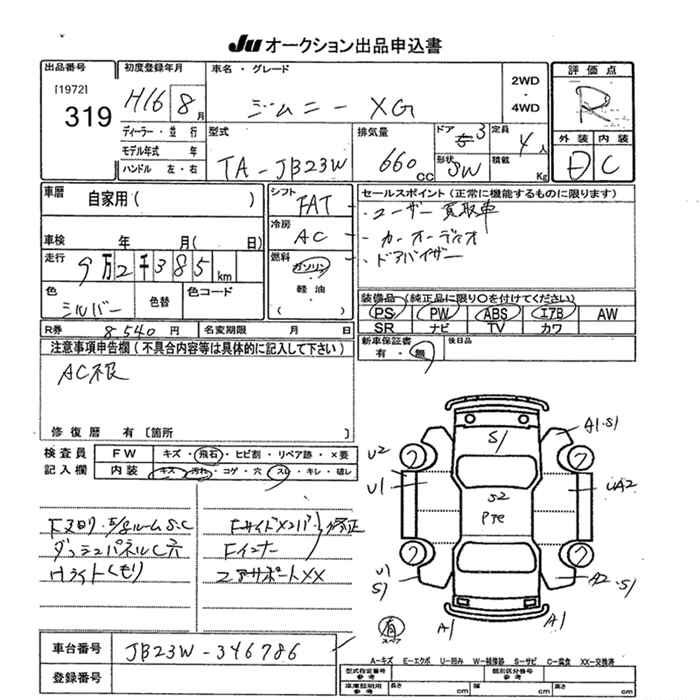 JU オークション出品申込書
出品番号
[1972]
319
初度登録年月
H16 8月
車名・グレード
ジムニー XG
2WD
・
4WD
評価点
R
外装 内装
D C
ディーラー・並行
モデル年式 年
ハンドル 左・右
型式
TA-JB23W
排気量
660 CC
ドア 3
定員
4人
形状 SW
積載
Kg
車歴
自家用( )
シフト
FAT
冷房
AC
セールスポイント(正常に機能するものに限ります)
・ユーザー買取車
・カーオーディオ
・ドアバイザー
車検 年 月( 日)
走行
9万2千385km
燃料
ガソリン
・
軽油
( )
色
シルバー
色替
色コード
装備品(純正品に限り○を付けてください)
PS PW ABS エアB AW
SR ナビ TV カワ
R券 8540円
名変期限 月 日
新車保証書
有・無
後日品
注意事項申告欄(不具合内容等は具体的に記入して下さい)
AC不良
修復歴 有〔箇所
検査員
記入欄
FW キズ・飛石・ヒビ割・リペア跡・×要
内装 キズ・汚れ・コゲ・穴・スレ・キレ・破レ
ダッシュパネルC穴
Hライトくもり
FサイドメンバXX
修正
Fインナー
コアサポートXX
S1
A1・S1
U2
U1
S2
Pтe
UA2
U1
S1
A2・S1
A1
A1
有
スペア
車台番号
JB23W-346786
登録番号
A-キズ E-エクボ U-凹み W-補修跡 S-サビ C-腐食 XX-交換済
型式指定番号
参考
類別区分番号
参考
車庫証明用
参考
長さ cm
幅 cm
高さ cm